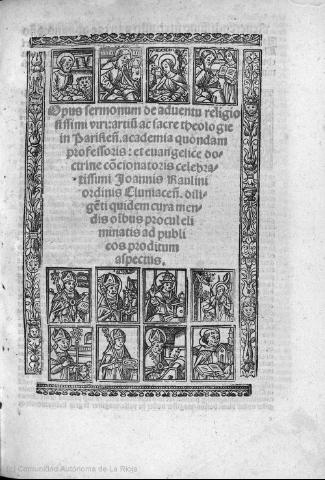 Opus sermonum de aduentu religio
sissimi viri: artiũ ac sacre theologie
in Parisieñ. academia quondam
professoris: et euangelice do-
ctrine cõcionatoris celebra-
tissimi Joannis Raulini
ordinis Cluniaceñ. dili-
gẽti quidem cura men-
dis oĩbus procul eli
minatis ad publi
cos proditum
aspectus.
(c) Comunidad Autónoma de La Rioja